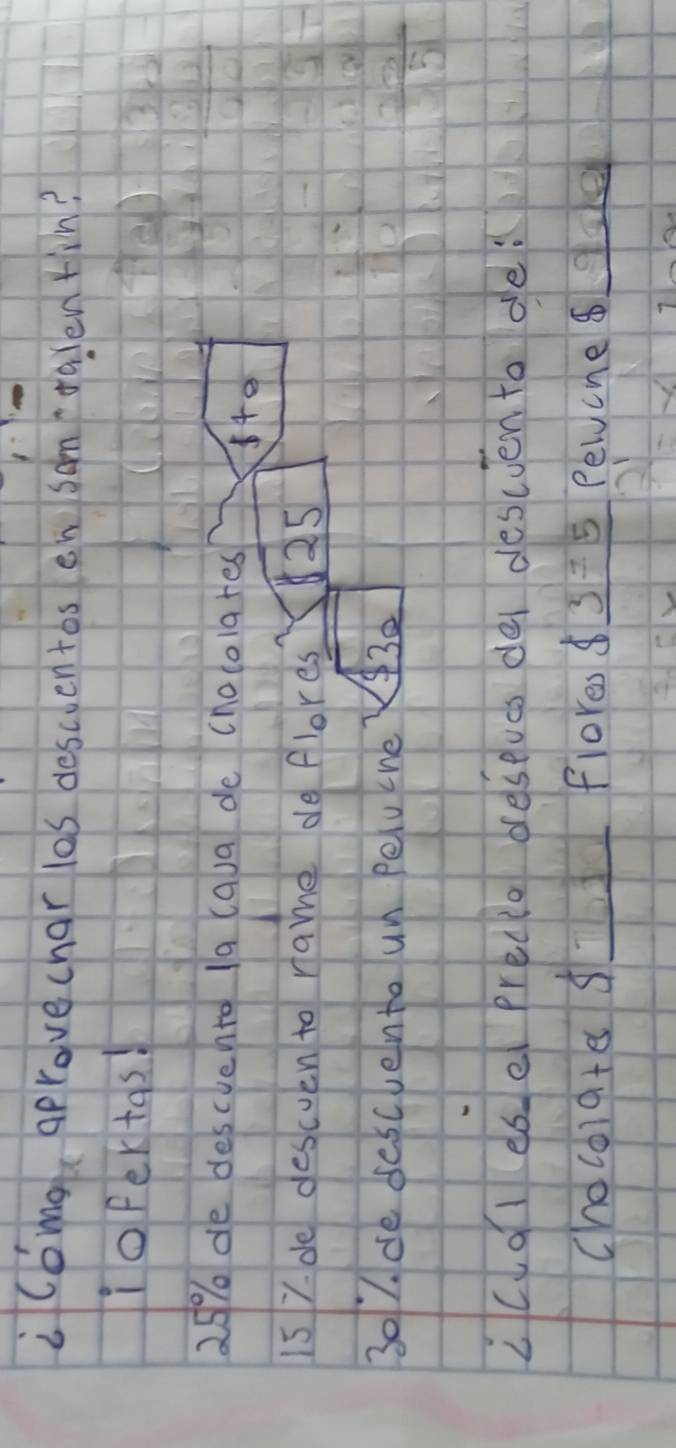 ¿Cómo aprovechar los descuentos en san valentin?
¡Ofertas!
25% de descuento la caja de chocolates $40
15% de descuento ramo de flores $25
30% de descuento un Peluche $30
¿Cuál es el Precio después del descuento de:
Chocolate $ Flores $ 375 Peluche $ 900